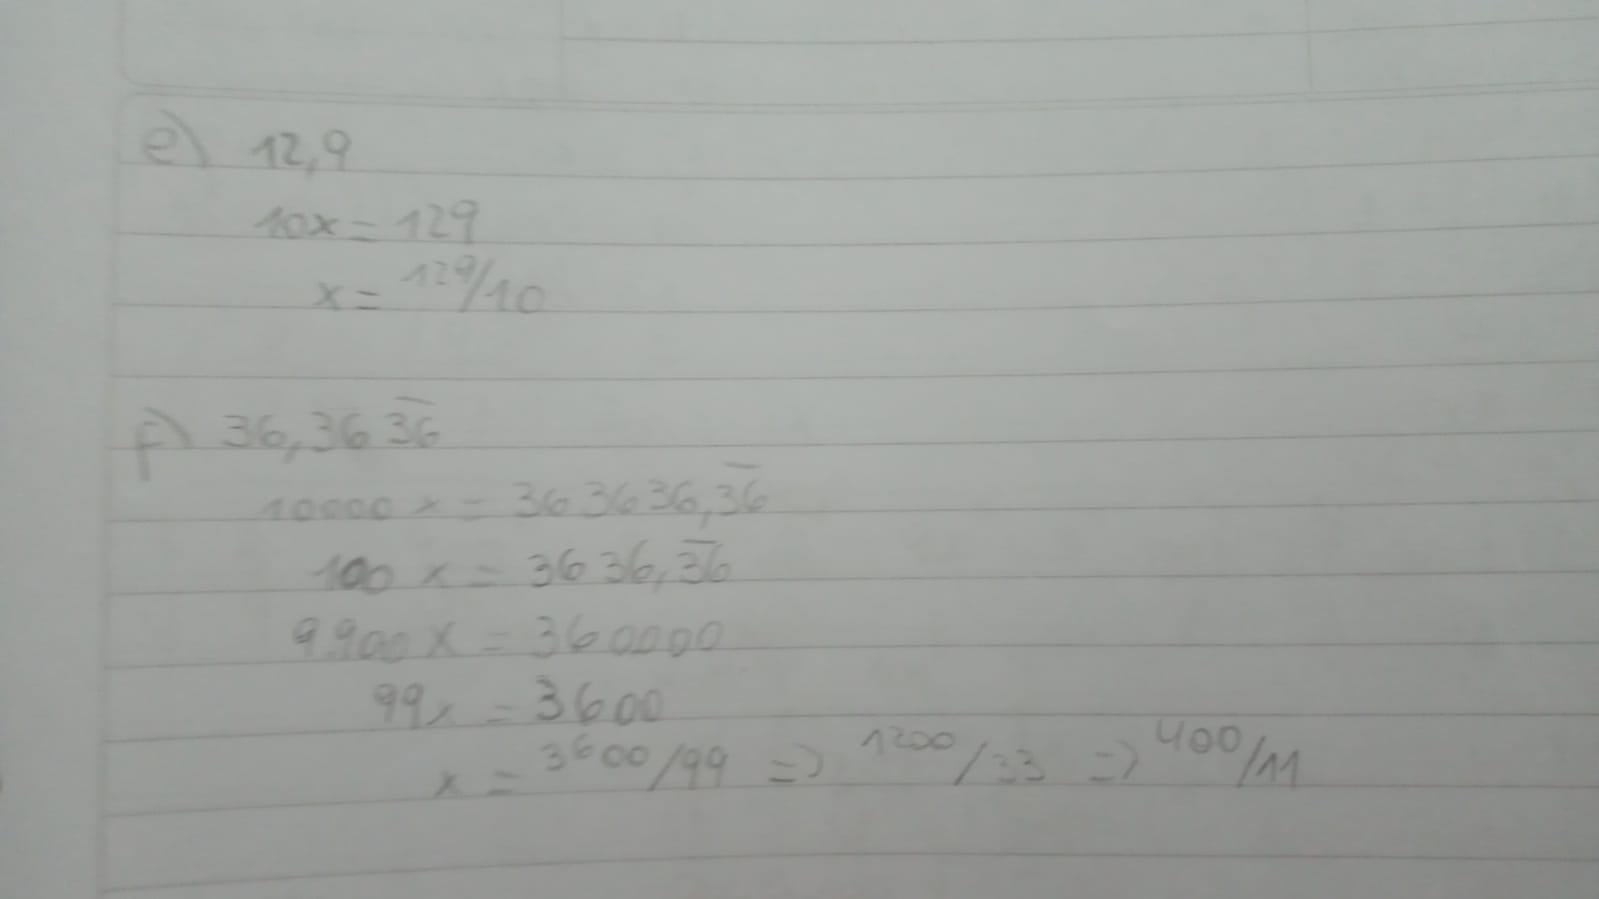 e) 12,9
10x = 129
x = 129/10
f) 36,36 3̅6̅
10000 x = 363636,3̅6̅
100 x = 3636,3̅6̅
9.900 x = 360000
99x = 3600
x = 3600/99 => 1200/33 => 400/11